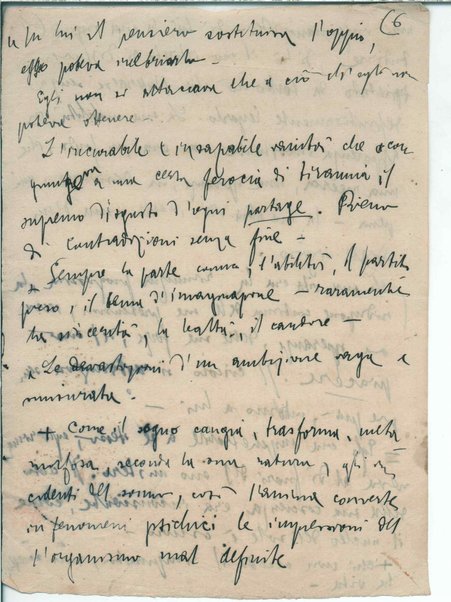 6
In lui il pensiero sostituiva l'oppio,
esso poteva inebriarlo –
Egli non si attaccava che a ciò ch'egli non
poteva ottenere
L'incurabile e insaziabile vanità che
a una certa ferocia di tiranna, il
supremo disgusto d'ogni partage. Pieno
di contradizioni senza fine –
Sempre la parte comica, l'abilità, il partito
preso, il tema d'imaginazione – raramente
la sincerità, la lealtà, il candore –
Le devastazioni d'un ambizione vaga e
smisurata
+ Come il sogno cangia, trasforma, meta
morfosa, secondo la sua natura, gli ac
cidenti del sonno, così l'anima converte
in fenomeni psichici le impressioni del
l'organismo mal definite